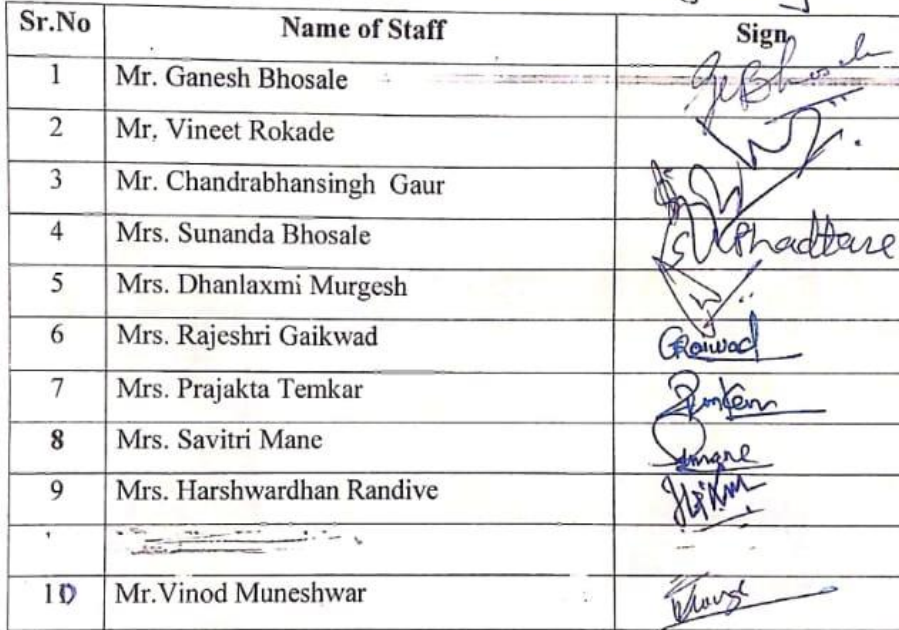 Sr.No Name of Staff Sign
1 Mr. Ganesh Bhosale
2 Mr. Vineet Rokade
3 Mr. Chandrabhansingh Gaur
4 Mrs. Sunanda Bhosale SVPhadtare
5 Mrs. Dhanlaxmi Murgesh
6 Mrs. Rajeshri Gaikwad
7 Mrs. Prajakta Temkar
8 Mrs. Savitri Mane
9 Mrs. Harshwardhan Randive
10 Mr.Vinod Muneshwar